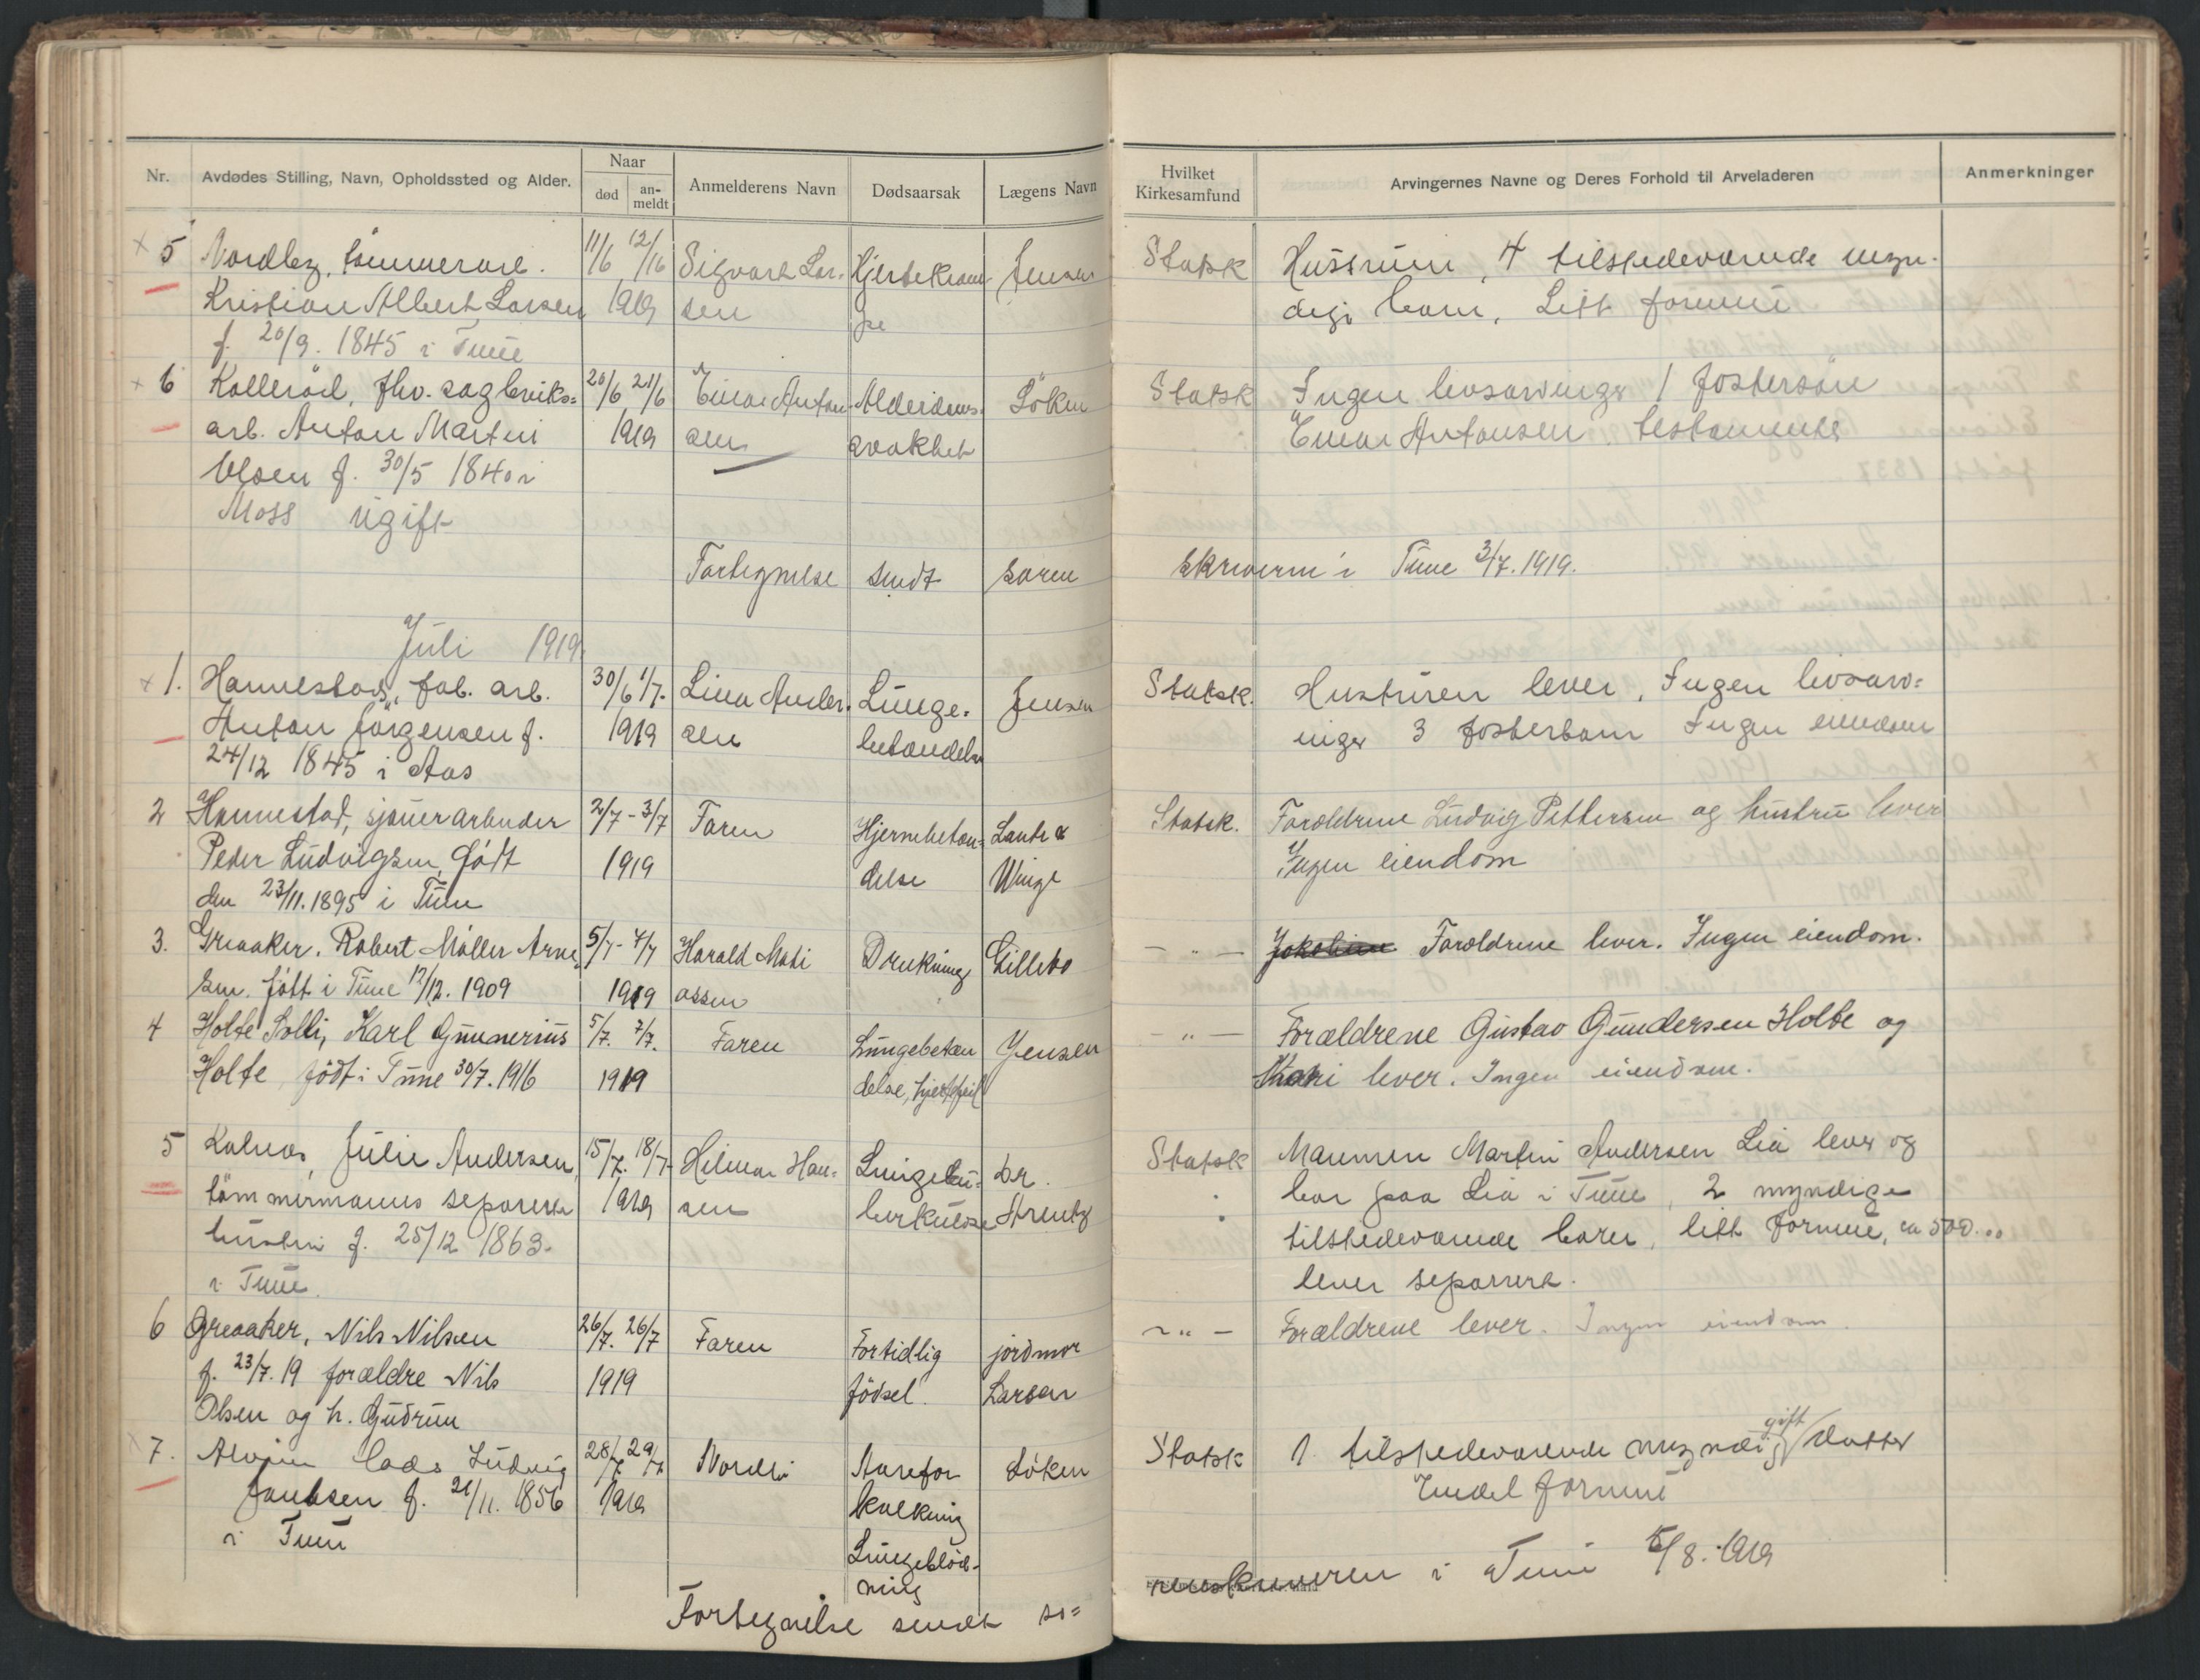 Nr. Avdødes Stilling, Navn, Opholdssted og Alder. Naar død an-meldt Anmelderens Navn Dødsaarsak Lægens Navn Hvilket Kirkesamfund Arvingernes Navne og Deres Forhold til Arveladeren Anmerkninger
5 Nordby, tömmerarb. 11/6 12/6 Sigvart Lar- Hjertekram- Jensen Statsk Hustruen, 4 tilstedeværende myn-
Kristian Albert Larsen 1919 sen pe dige barn. Litt formue
f. 20/9. 1845 i Tune
6 Kalleröd, fhv. sagbruks= 20/6 21/6 Einar Anton- Alderdoms- Löken Statsk Ingen livsarvinger 1 fostersön
arb. Anton Martin 1919 sen svakhet Einar Antonsen. testamente
Olsen f. 30/5 1840 i
Moss ugift
Fortegnelse sendt soren skriveren i Tune 3/7. 1919.
Juli 1919
1. Hannestad, fab. arb. 30/6 1/7. Lina Ander- Lunge- Jensen Statsk. Hustruen lever, Ingen livsarv=
Anton Jörgensen f. 1919 sen betændelse inger 3 fosterbarn Ingen eiendom
24/12 1845 i Aas
2 Hannestad, sjauerarbeider 2/7 - 3/7 Faren Hjernebetæn- Statsk. Forældrene Ludvig Pettersen og hustru lever
Peder Ludvigsen født 1919 delse Winge Ingen eiendom
den 23/11. 1895 i Tune
3. Greaaker. Robert Møller Arne 5/7 - 7/7 Harald Mati Drukning Lillebo - " - Forældrene lever. Ingen eiendom.
sen. født i Tune 12/12. 1909 1919 assen
4 Holte Solli, Karl Gunnerius 5/7. 7/7. Faren Lungebetæn Jensen - " - Forældrene Gustav Gundersen Holte og
Holte født i Tune 30/7. 1916 1919 delse, hjertefeil Kari lever. Ingen eiendom.
5 Kalnes, Julie Andersen, 15/7. 18/7. Hilmar Han= Lungetu= Dr. Statsk Mannen Martin Andersen Lia lever og
tömmermanns separerte 1919 sen berkulose Arentz bor paa Lia i Tune, 2 myndige
hustru f. 25/12 1863. tilstedeværende barn, litt formue, ca 500...
i Tune. lever separert.
6 Greaaker, Nils Nilsen 26/7. 26/7 Faren Fortidlig jordmor - " - Forældrene lever. Ingen eiendom.
f. 23/7. 19 forældre Nils 1919 fødsel. Larsen
Olsen og h. Gudrun
7. Ludvig 28/7 29/7 Nordli Aarefor Löken Statsk 1 tilstedeværende myndig gift datter
Jacobsen f. 21/11. 1856 1919 kalkning Endel formue
i Tune Lungeblöd-
ning
Fortegnelse sendt so= renskriveren i Tune 5/8. 1919